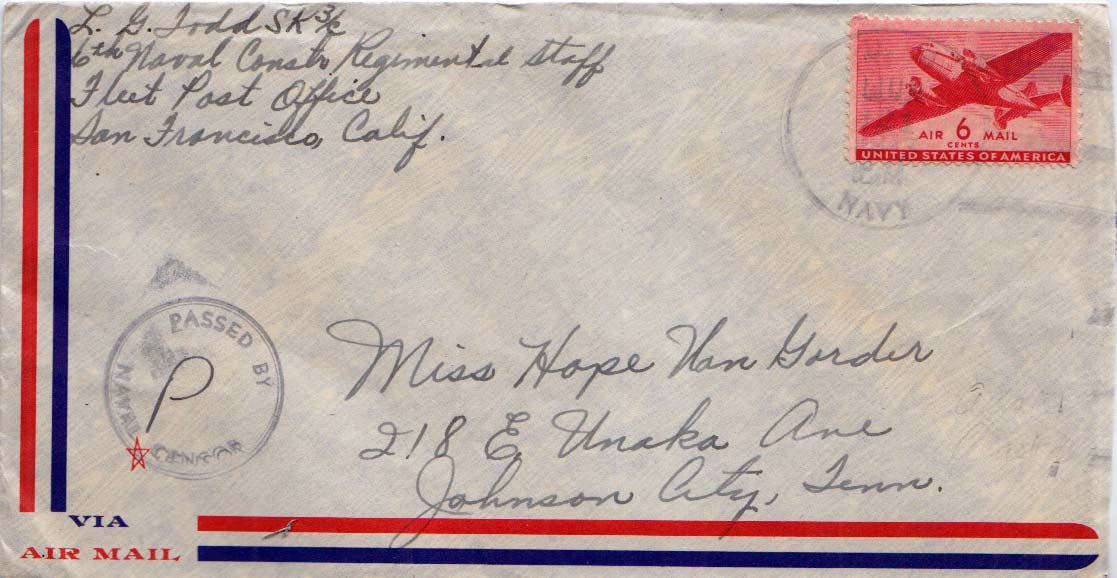 L. G. Todd SK 3/c
6th Naval Constr. Regimental Staff
Fleet Post Office
San Francisco, Calif.
AIR 6 MAIL
CENTS
UNITED STATES OF AMERICA
NAVY
PASSED BY
NAVAL CENSOR
P
Miss Hope Van Gorder
218 E. Unaka Ave
Johnson City, Tenn.
VIA
AIR MAIL